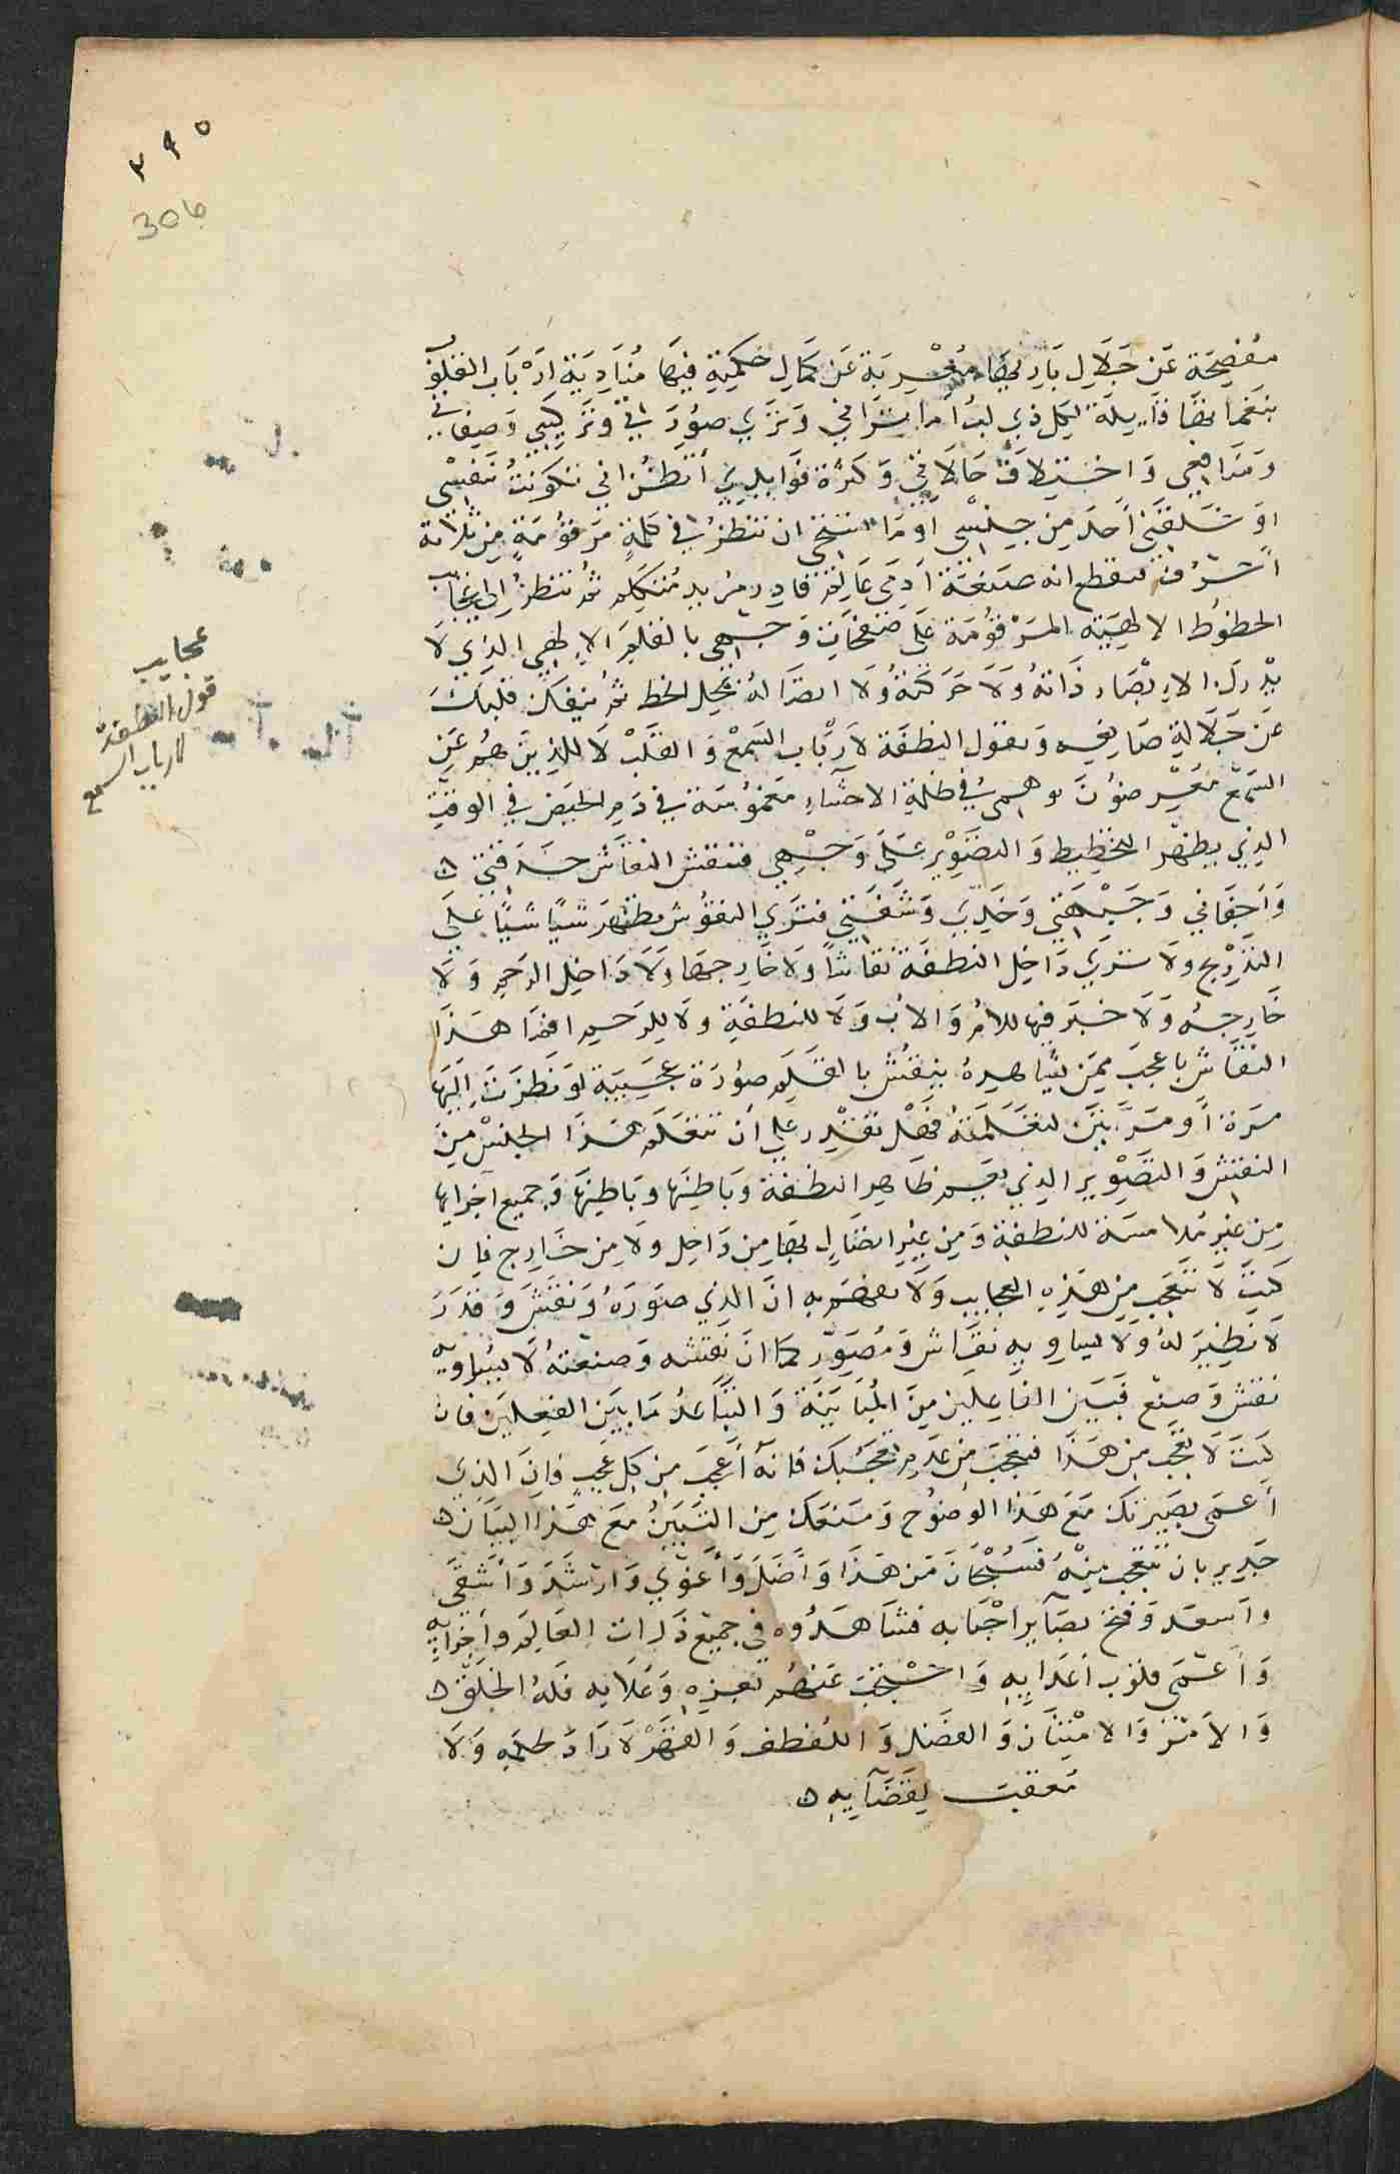 ٢٩٥
306
مُفصِحَة عَن جَلَالِ بَارِيهَا مُعْرِبَة عَن كَمَالِ حكمتِهِ فيهَا مُنَادِيَة ارْبَاب القلوُب
بنغماتها قاَيلَة لِكل ذي لبُ أما تراني وَتري صوُرَتي وتركيبي وَصِفاتي
ومَنافعي وَاختِلاف حالاتي وَكثرة فوَايدي أتظن اني تكونتُ بنفسي
اوَ خلقني أحد مِن جِنسي اوَ مَا تستحي ان تنظرُ في كلمةٍ مرَقوُمَة مِن ثلاثة
أحرُف فتقطع انه صنعَة آدَمي عَالِم قادِر مُريد مُتكلم ثمُ تنظرُ إلي عجَاَيب
الخطوُط الالهيَّة المرقوُمَة عَلي صفحَات وَجهي بالقلم الالهي الذي لاَ
يدْرك الابصَار ذاتهُ وَلاَ حَرَكتهُ ولاَ اتصَالهُ بمحل الخط ثمُ ينفكُ قلبُكَ
عَن جَلالَة صَانِعِه وَتقول النطفَة لاَرْبَاب السَمعْ وَالقلبْ لا للذين هُم عَن
السَمعْ مَعْزولوُنَ توَهمني في ظلمة الاحشاءِ مغموُسَة في دَمِ الحيَض في الوَقت
الذي يظهَر التخطِيط وَالتصَوْير عَلي وَجْهِي فينقش النقاش حدَقتي ه
وَأجفاني وَجَبْهتي وَخدّي وَشفَتي فتَري النقوُش يظهَر شيًا شيًا علي
التدرِيج ولا تري دَاخِل النطفة نقاشًا ولا خارجهَا ولاَ دَاخِل الرَحم وَلاَ
خارجهُ وَلاَ خبَر فيها للامُ وَالاب وَلاَ للنطفة ولاَ للرَحِم افمَا هَذا
النقاش باعجَب ممِن يشاهِدهُ ينقش بالقلم صوُرَة عَجيبَة لوَ نظَرت اليهَا
مرَة أو مرَّتين لتعَلمتهُ فهَل تقدِر علي أن تتعَلم هَذا الجنسْ مِن
النقش وَالتصوير الذي يعُم ظاهِر النطفة وبَاطِنها وبَاطِنها وَجميع اجزايها
من غير مُلامسَة للنطفة وَمن غير اتصَال بهَا مِن دَاخِل ولاَ مِن خارِج فان
كنتَ لاَ تتعجَب مِن هَذِهِ العجَايب وَلاَ تفهَم بها انَّ الذي صَوَرَهُ وَنقش وَقدَرَ
لاَ نظِير لهُ ولا يسَاويهِ نقاش وَمُصَوّر كما انَ نقشه وَصنعتهُ لاَ يُساويهِ
نقش وَصنع فبَين الفاعِلين مِنَ المُبَاينَة وَالتبَاعد مَا بين الفِعلين فان
كنتَ لاَ تتعجَب مِن هَذا فتعَجب مِن عَدَم تعجُبك فانهُ أعجَب مِن كل عَجبٍ فانّ الذي
أعمَي بصيرتكَ مَعَ هَذا الوضوُح وَمنعكَ مِن التَبَيّنُ مَعَ هَذا البيَان ه
جَدِير بان تتعَجب مِنْهُ فسُبْحَانَ مَن هَدَا وَأَضَلَ وَأغوَي وَارشَدَ وَأشقَي
واسعَد وَفتح بصَاير احْبَابه فشاهَدُوه في جميع ذرات العالم وأجزايهِ
وَأعْمَي قلوُب أعدَايهِ وَاحْتجبَ عَنهم بعزِهِ وَعلايه فلهُ الخلق ه
وَالاَمر وَالامتنَان وَالفضل وَاللطف وَالقهَرْ لاَ رَادَّ لحكمهِ وَلاَ
مُعقبَ لقضَايهِ ه
عجايب
قول النطفة
لارباب السمع